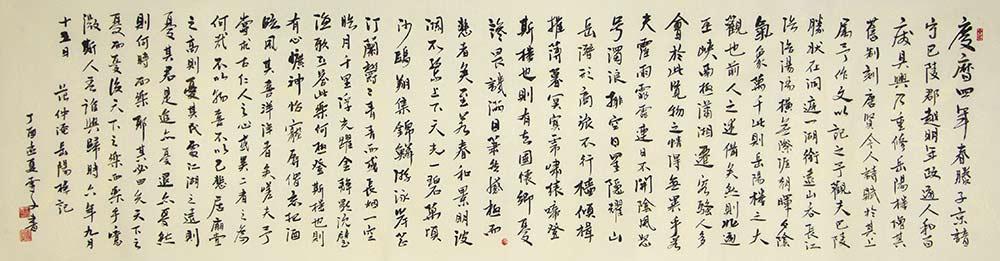 慶曆四年春滕子京謫
守巴陵郡越明年政通人和百
廢具興乃重修岳陽樓增其
舊制刻唐賢今人詩賦於其上
屬予作文以記之予觀夫巴陵
勝狀在洞庭一湖銜遠山吞長江
浩浩湯湯橫無際涯朝暉夕陰
氣象萬千此則岳陽樓之大
觀也前人之述備矣然則北通
巫峽南極瀟湘遷客騷人多
會於此覽物之情得無異乎若
夫霪雨霏霏連日不開陰風怒
号濁浪排空日星隱耀山
岳潛形商旅不行檣傾楫
摧薄暮冥冥虎嘯猿啼登
斯樓也則有去國懷鄉憂
讒畏譏滿目蕭然感極而
悲者矣至若春和景明波
瀾不驚上下天光一碧萬頃
沙鷗翔集錦鱗游泳岸芷
汀蘭鬱鬱青青而或長烟一空
皓月千里浮光躍金靜影沉璧
漁歌互答此樂何極登斯樓也則
有心曠神怡寵辱偕忘把酒
臨風其喜洋洋者矣嗟夫予
嘗求古仁人之心或異二者之為
何哉不以物喜不以己悲居廟堂
之高則憂其民處江湖之遠則
憂其君是進亦憂退亦憂然
則何時而樂耶其必曰先天下之
憂而憂後天下之樂而樂乎噫
微斯人吾誰與歸時六年九月
十五日 范仲淹岳陽樓記
丁酉孟夏李書